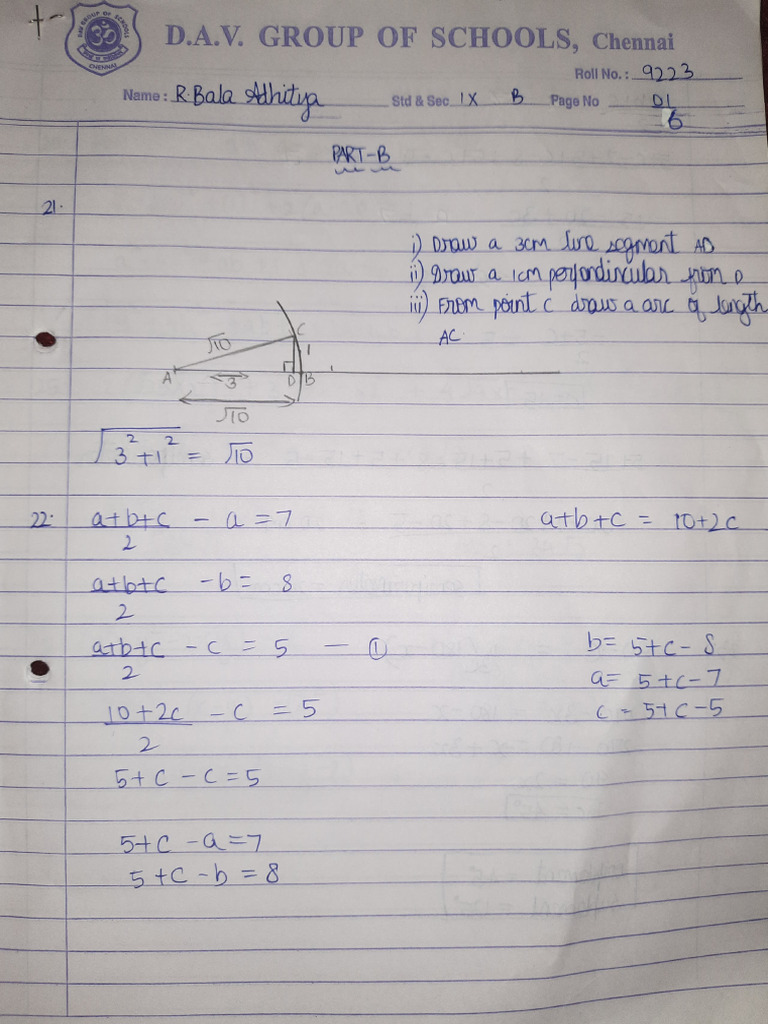 D.A.V. GROUP OF SCHOOLS, Chennai
DAV GROUP OF SCHOOLS
CHENNAI
Roll No. : 9223
Name : R.Bala Adhitya Std & Sec IX B Page No 01
6
PART-B
21.
i) Draw a 3cm line segment AD
ii) Draw a 1cm perpendincular from D
iii) From point C draw a arc of length
AC.
√10
C
1
A
3
D
B
√10
√3²+1² = √10
22. a+b+c/2 - a = 7
a+b+c = 10+2c
a+b+c/2 - b = 8
a+b+c/2 - c = 5 — ①
b = 5+c-8
a = 5+c-7
10+2c/2 - c = 5
c = 5+c-5
5+c-c=5
5+c-a=7
5+c-b=8